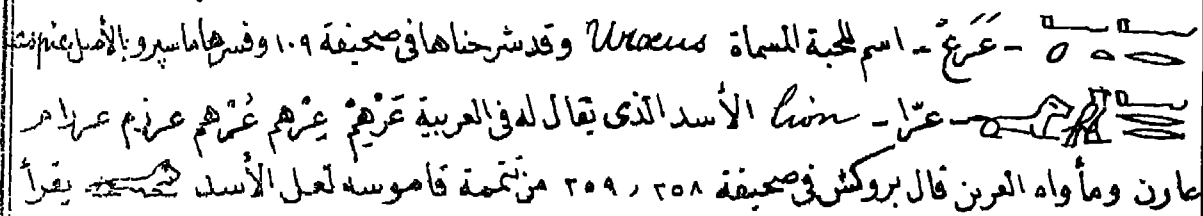 - عَرَعْ - اسم للحية المسماة Uraeus وقد شرحناها في صحيفة ١٠٩ وفسرها ماسپرو بالأصل
- عرّا - Lion الأسد الذى يقال له فى العربية عَزْهِمْ عِزْهم عُزْهم عرزم عرزام
عارن ومأواه العرين قال بروكش فى صحيفة ٢٥٨ ، ٢٥٩ من تتمة قاموسه لعل الأسد يقرأ